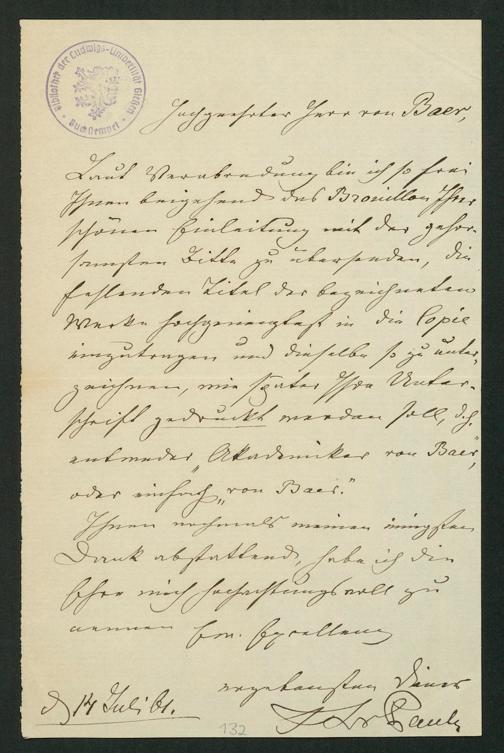 Bibliothek der Ludwigs-Universität Gießen
Buchstempel
Hochgeehrter Herr von Baer,
Laut Verabredung bin ich so frei
Ihnen beigehend das Brouillon Ihrer
schönen Einleitung mit der gehor-
samsten Bitte zu übersenden, die
fehlenden Titel der bezeichneten
Werke hochgeneigtest in die Copie
einzutragen und dieselbe so zu unter-
zeichnen, wie später Ihre Unter-
schrift gedruckt werden soll, d.h.
entweder „Akademiker von Baer“,
oder einfach „von Baer.“
Ihnen nochmals meinen innigsten
Dank abstattend, habe ich die
Ehre mich hochachtungsvoll zu
nennen Ew. Excellenz
ergebensten Diener
Pauly
14 Juli 61.
132